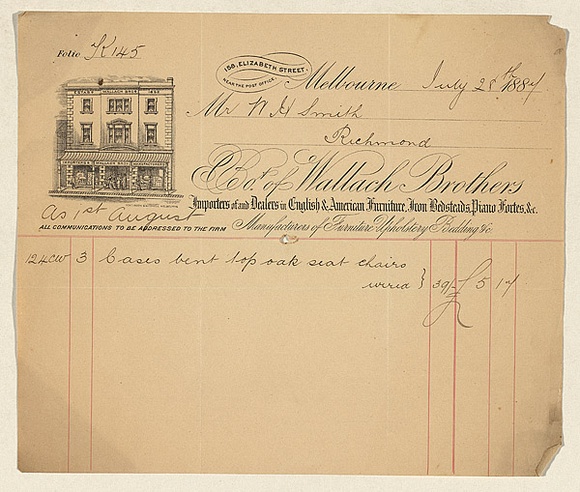 Folio K145
158, ELIZABETH STREET.
NEAR THE POST OFFICE.
Melbourne July 28th 1887
Mr W H Smith
Richmond
ESTABD WALLACH BROS
Bot. of Wallach Brothers
Importers of and Dealers in English & American Furniture, Iron Bedsteads, Piano Fortes, &c.
As 1st August
ALL COMMUNICATIONS TO BE ADDRESSED TO THE FIRM
Manufacturers of Furniture Upholstery Bedding &c
3 Cases bent top oak seat chairs
wired } 39/- £ 5 17